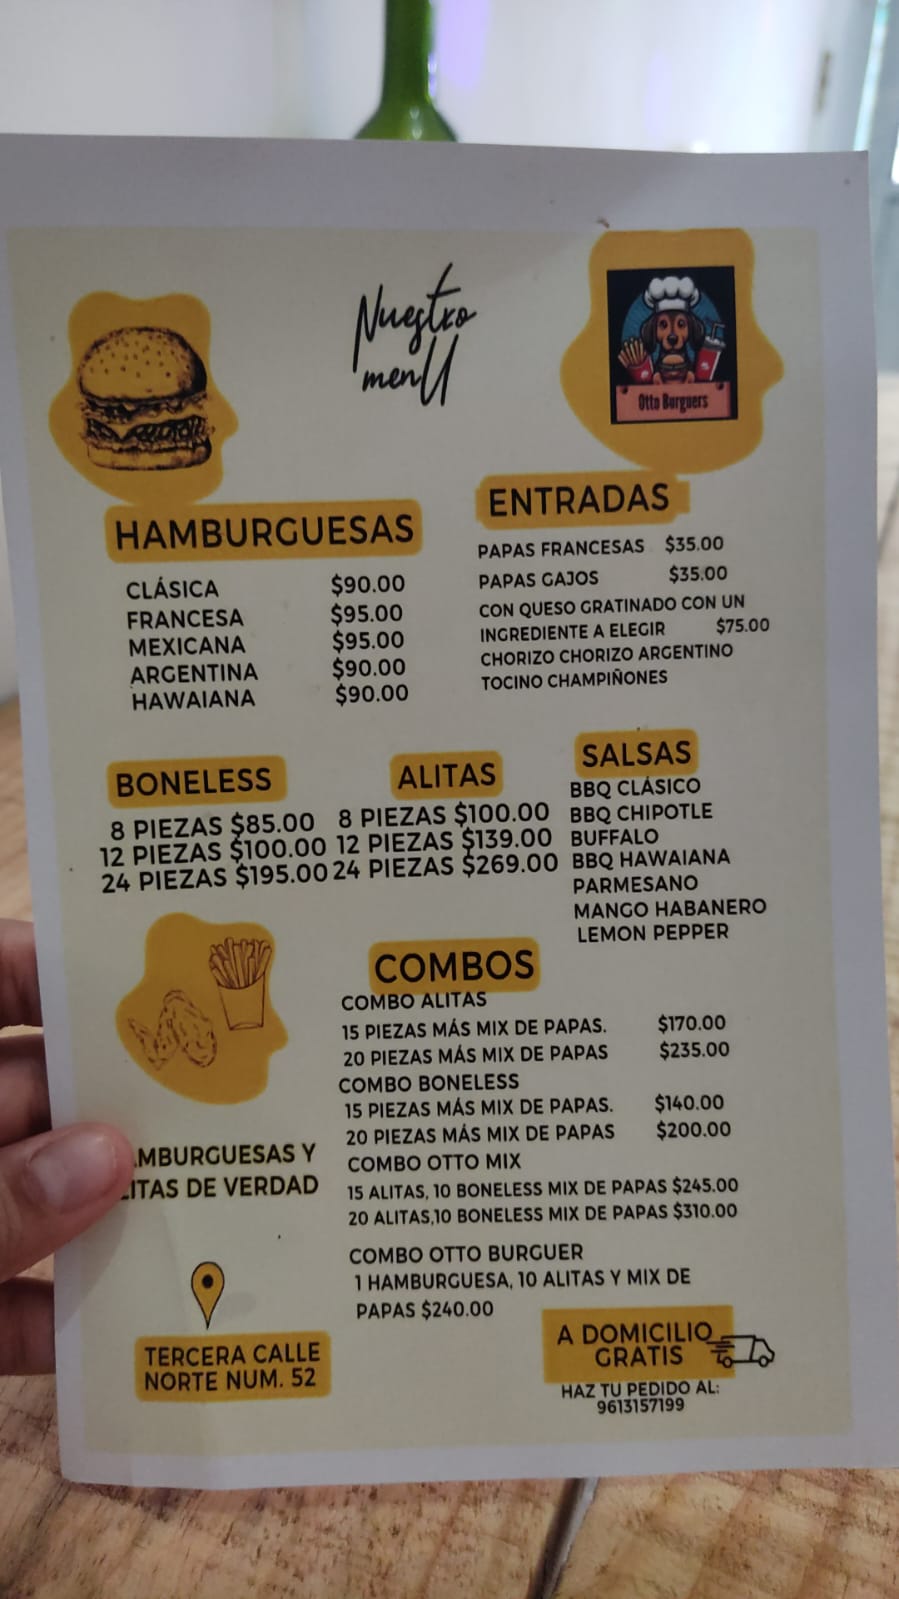 Nuestro
menU
Otto Burguers
HAMBURGUESAS
CLÁSICA $90.00
FRANCESA $95.00
MEXICANA $95.00
ARGENTINA $90.00
HAWAIANA $90.00
ENTRADAS
PAPAS FRANCESAS $35.00
PAPAS GAJOS $35.00
CON QUESO GRATINADO CON UN
INGREDIENTE A ELEGIR $75.00
CHORIZO CHORIZO ARGENTINO
TOCINO CHAMPIÑONES
BONELESS
8 PIEZAS $85.00
12 PIEZAS $100.00
24 PIEZAS $195.00
ALITAS
8 PIEZAS $100.00
12 PIEZAS $139.00
24 PIEZAS $269.00
SALSAS
BBQ CLÁSICO
BBQ CHIPOTLE
BUFFALO
BBQ HAWAIANA
PARMESANO
MANGO HABANERO
LEMON PEPPER
COMBOS
COMBO ALITAS
15 PIEZAS MÁS MIX DE PAPAS. $170.00
20 PIEZAS MÁS MIX DE PAPAS $235.00
COMBO BONELESS
15 PIEZAS MÁS MIX DE PAPAS. $140.00
20 PIEZAS MÁS MIX DE PAPAS $200.00
COMBO OTTO MIX
15 ALITAS, 10 BONELESS MIX DE PAPAS $245.00
20 ALITAS,10 BONELESS MIX DE PAPAS $310.00
COMBO OTTO BURGUER
1 HAMBURGUESA, 10 ALITAS Y MIX DE
PAPAS $240.00
AMBURGUESAS Y
LITAS DE VERDAD
TERCERA CALLE
NORTE NUM. 52
A DOMICILIO
GRATIS
HAZ TU PEDIDO AL:
9613157199